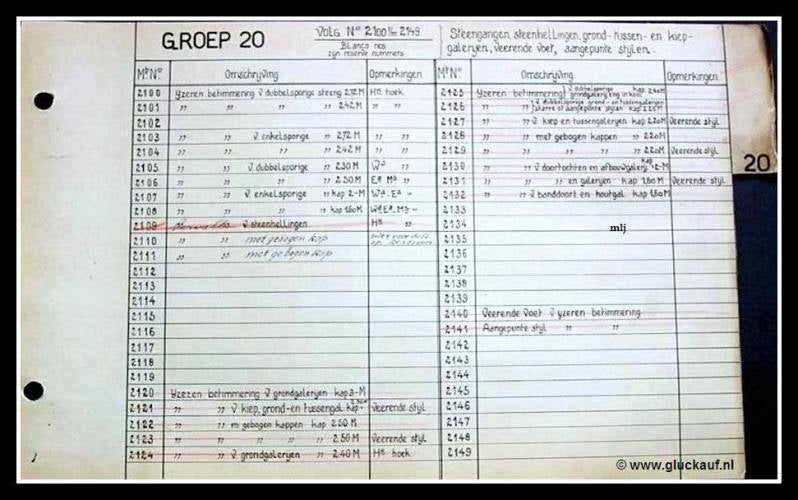 GROEP 20
VOLG Nos 2100 t/m 2149.
BLANCO nos.
zijn reserve nummers
Steengangen, steenhellingen, grond- tussen- en kiep-
galerijen, veerende voet, aangepunte stijlen.
Mg No Omschrijving Opmerkingen
2100 Yzeren betimmering v dubbelsporige steeng 2.72 M Ho. hoek
2101 " " " " " 2.42 M " "
2102
2103 " " v enkelsporige " 2.72 M " "
2104 " " " " 2.42 M " "
2105 " " v dubbelsporige " 2.30 M
2106 " " " " 2.50 M
2107 " " v enkelsporige " kap 2-M
2108 " " " " kap 1.60 M
2109 v steenhellingen "
2110 " " met gebogen kap
2111 " " met gebogen kap
2112
2113
2114
2115
2116
2117
2118
2119
2120 Yzeren betimmering v grondgalerijen kap 3-M
2121 " " v kiep, grond-en tussengal kap Veerende stijl
2122 " " m gebogen kappen kap 2.50 M.
2123 " " " " " 2.50 M Veerende stijl
2124 " " v. grondgalerijen " 2.40 M Hs hoek
Mg No Omschrijving Opmerkingen
2125 Yzeren betimmering v dubbelsporige kap 2.40 M
grondgalerij eng in kool
2126 " " v dubbelsporige grond- en tussengalerijen
starre of aangepunte stijlen kap 2.20 M
2127 " " v kiep en tussengalerijen kap 2.20 M Veerende stijl
2128 " " met gebogen kappen " 2.20 M
2129 " " " " " " 2.20 M Veerende stijl
2130 " " v doortochten en afbouwgalerij kap 2-M
2131 " " " en galerijen kap 1.60 M Veerende stijl
2132 " " v banddoort en houtgal. kap 1.60 M
2133
2134
mlj
2135
2136
2137
2138
2139
2140 Veerende voet v yzeren betimmering
2141 Aangepunte stijl " " "
2142
2143
2144
2145
2146
2147
2148
2149
20
© www.gluckauf.nl